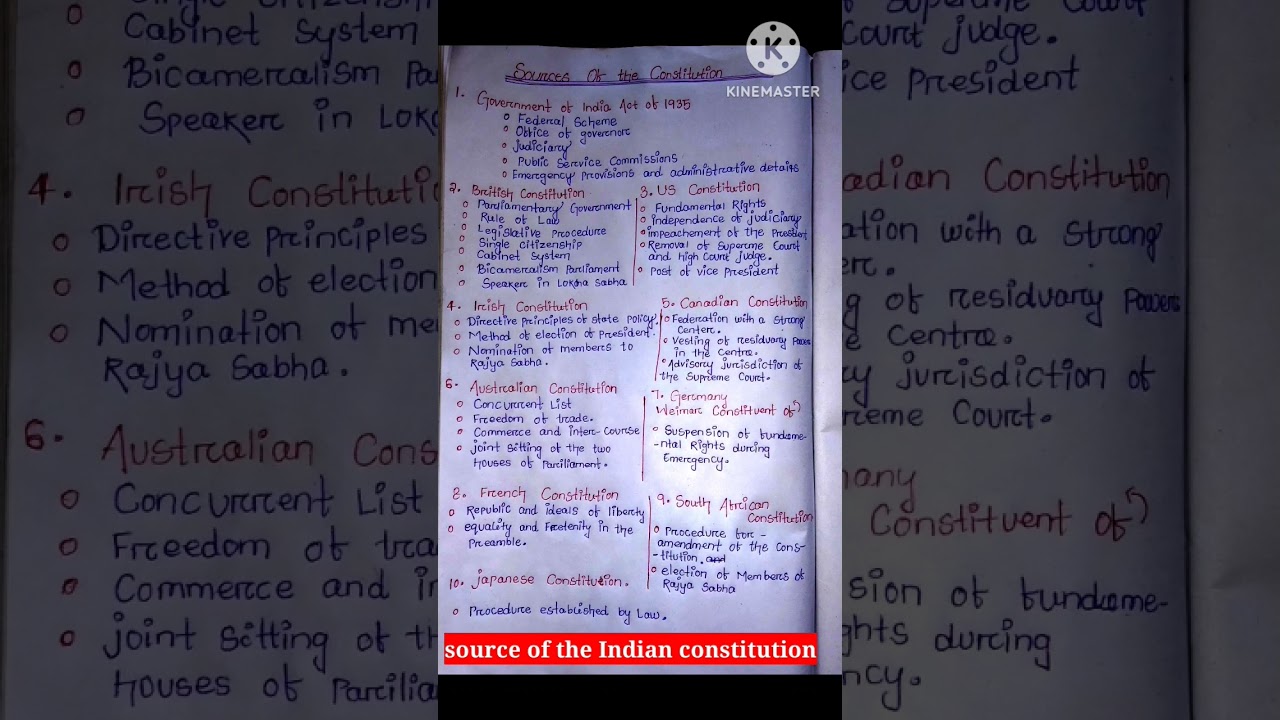 KINEMASTER
Sources Of the Constitution
1. Government of India Act of 1935
Federal Scheme
Office of governor
Judiciary
Public Service Commissions
Emergency provisions and administrative details
2. British Constitution
Parliamentary Government
Rule of Law
Legislative Procedure
Single citizenship
Cabinet System
Bicameralism Parliament
Speaker in Lokha Sabha
3. US Constitution
Fundamental Rights
independence of judiciary
impeachement of the President
Removal of Supreme Court
and high Court judge.
Post of vice President
4. Irish Constitution
Directive principles of state policy
Method of election of President.
Nomination of members to
Rajya Sabha.
5. Canadian Constitution
Federation with a strong
Center.
Vesting of residuary Powers
in the Centre.
Advisory jurisdiction of
the Supreme Court.
6. Australian Constitution
Concurrent List
Freedom of trade.
Commerce and inter-course
joint sitting of the two
Houses of Parliament.
7. Germany
Weimar Constituent of
Suspension of fundame-
-ntal Rights during
Emergency.
8. French Constitution
Republic and ideals of liberty
equality and Freternity in the
Preamble.
9. South African
Constitution
Procedure for -
amendment of the cons-
-titution.
election of Members of
Rajya Sabha
10. Japanese Constitution.
Procedure established by Law.
source of the Indian constitution